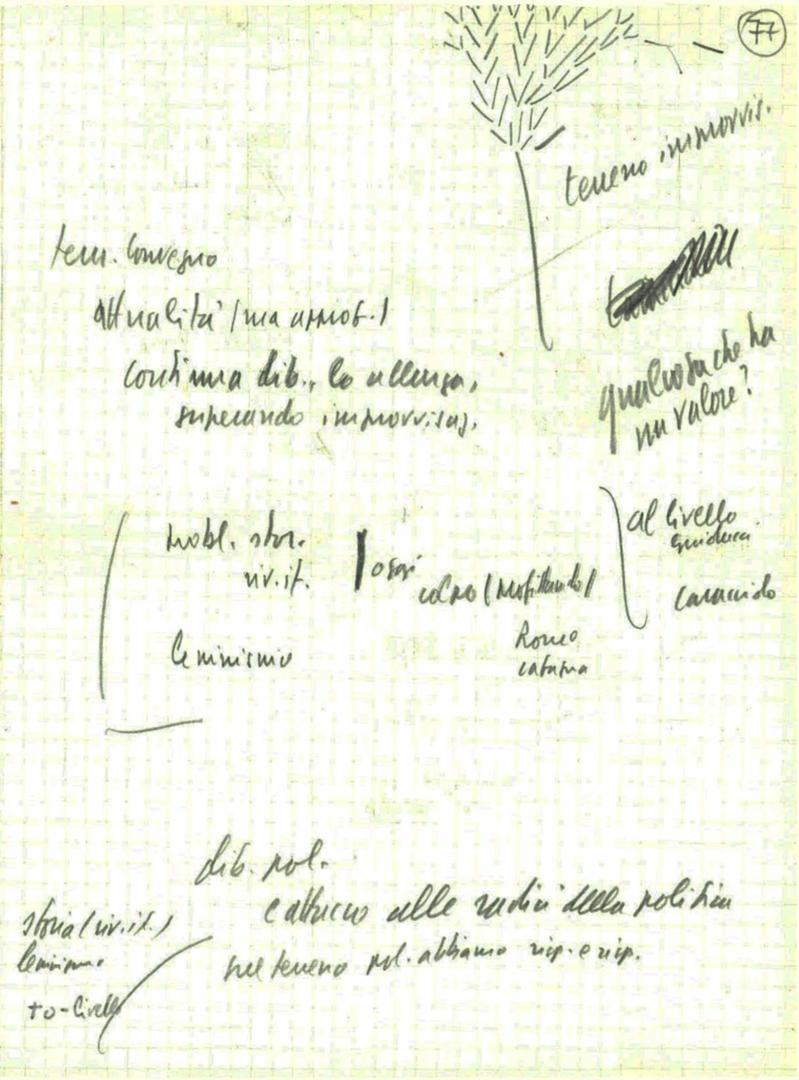 77
terreno improvvis.
tem. convegno
attualità (ma approf.)
continua dib., lo allarga,
superando improvvisaz.
qualcosa che ha
un valore?
probl. stor.
riv. it.
oggi
colpo (profittando)
al livello
Caracciolo
leninismo
Romeo
catena
dib. pol.
e attacco alle radici della politica
sul terreno pol. abbiamo risp. e risp.
storia (riv. it.)
leninismo
to-livello